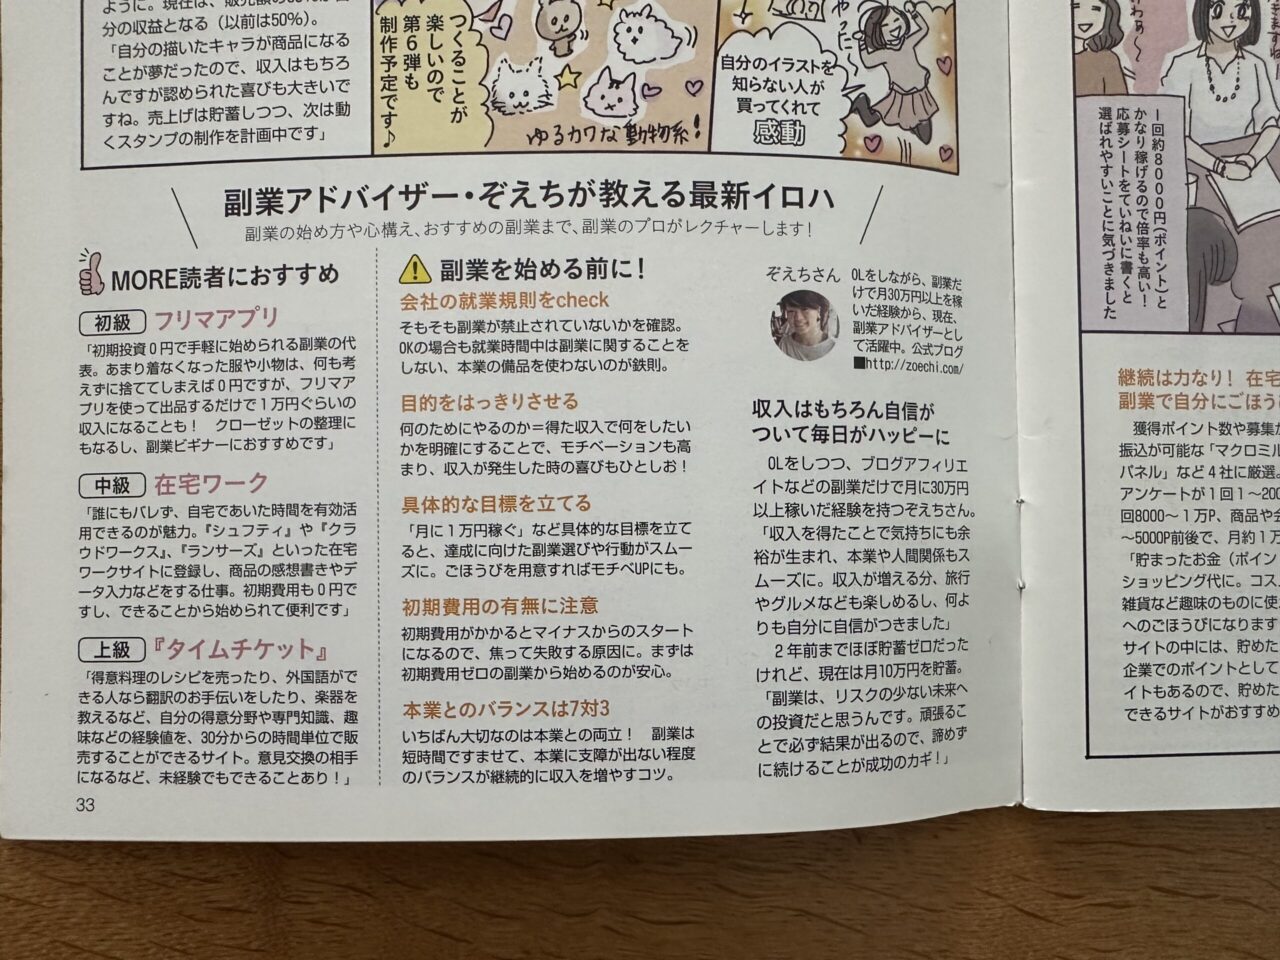 ように。現在は、販売額の
分の収益となる（以前は50%）。
「自分の描いたキャラが商品になる
ことが夢だったので、収入はもちろ
んですが認められた喜びも大きいで
すね。売上げは貯蓄しつつ、次は動
くスタンプの制作を計画中です」
つくることが
楽しいので
第6弾も
制作予定です♪
ゆるカワな動物系!
自分のイラストを
知らない人が
買ってくれて
感動
やった
副業アドバイザー・ぞえちが教える最新イロハ
副業の始め方や心構え、おすすめの副業まで、副業のプロがレクチャーします!
MORE読者におすすめ
初級 フリマアプリ
「初期投資0円で手軽に始められる副業の代
表。あまり着なくなった服や小物は、何も考
えずに捨ててしまえば0円ですが、フリマア
プリを使って出品するだけで1万円ぐらいの
収入になることも! クローゼットの整理に
もなるし、副業ビギナーにおすすめです」
中級 在宅ワーク
「誰にもバレず、自宅であいた時間を有効活
用できるのが魅力。『シュフティ』や『クラ
ウドワークス』、『ランサーズ』といった在宅
ワークサイトに登録し、商品の感想書きやデ
ータ入力などをする仕事。初期費用も0円で
すし、できることから始められて便利です」
上級 『タイムチケット』
「得意料理のレシピを売ったり、外国語がで
きる人なら翻訳のお手伝いをしたり、楽器を
教えるなど、自分の得意分野や専門知識、趣
味などの経験値を、30分からの時間単位で販
売することができるサイト。意見交換の相手
になるなど、未経験でもできることあり!」
33
副業を始める前に!
会社の就業規則をcheck
そもそも副業が禁止されていないかを確認。
OKの場合も就業時間中は副業に関することを
しない、本業の備品を使わないのが鉄則。
目的をはっきりさせる
何のためにやるのか=得た収入で何をしたい
かを明確にすることで、モチベーションも高
まり、収入が発生した時の喜びもひとしお!
具体的な目標を立てる
「月に1万円稼ぐ」など具体的な目標を立て
ると、達成に向けた副業選びや行動がスムー
ズに。ごほうびを用意すればモチベUPにも。
初期費用の有無に注意
初期費用がかかるとマイナスからのスタート
になるので、焦って失敗する原因に。まずは
初期費用ゼロの副業から始めるのが安心。
本業とのバランスは7対3
いちばん大切なのは本業との両立! 副業は
短時間ですませて、本業に支障が出ない程度
のバランスが継続的に収入を増やすコツ。
ぞえちさん
OLをしながら、副業だ
けで月30万円以上を稼
いだ経験から、現在、
副業アドバイザーとし
て活躍中。公式ブログ
■http://zoechi.com/
収入はもちろん自信が
ついて毎日がハッピーに
OLをしつつ、ブログアフィリエ
イトなどの副業だけで月に30万円
以上稼いだ経験を持つぞえちさん。
「収入を得たことで気持ちにも余
裕が生まれ、本業や人間関係もス
ムーズに。収入が増える分、旅行
やグルメなども楽しめるし、何よ
りも自分に自信がつきました」
2年前までほぼ貯蓄ゼロだった
けれど、現在は月10万円を貯蓄。
「副業は、リスクの少ない未来へ
の投資だと思うんです。頑張るこ
とで必ず結果が出るので、諦めず
に続けることが成功のカギ!」
一回約8000円(ポイント)と
かなり稼げるので倍率も高い!
応募シートをていねいに書くと
選ばれやすいことに気づきました
継続は力なり! 在宅
副業で自分にごほう
獲得ポイント数や募集が
振込が可能な「マクロミル
パネル」など4社に厳選。
アンケートが1回1〜200
回8000〜1万P、商品や
〜5000P前後で、月約1万
「貯まったお金（ポイン
ショッピング代に。コス
雑貨など趣味のものに使
へのごほうびになります
サイトの中には、貯めた
企業でのポイントとして
イトもあるので、貯めた
できるサイトがおすすめ